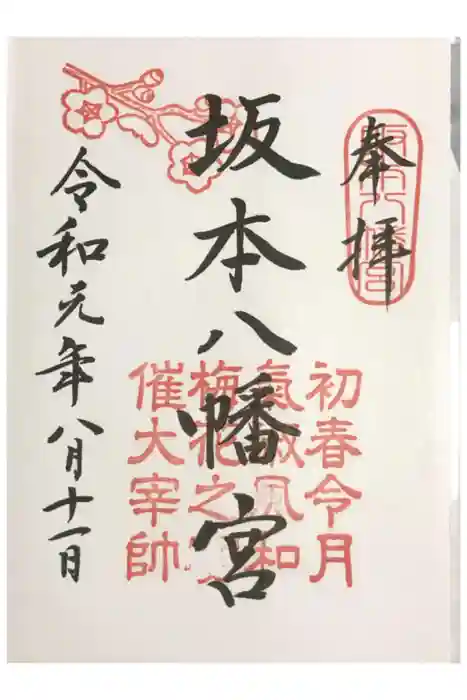 奉拝
坂本八幡宮
初春令月
氣淑風和
梅花之
催大宰帥
令和元年八月十一日